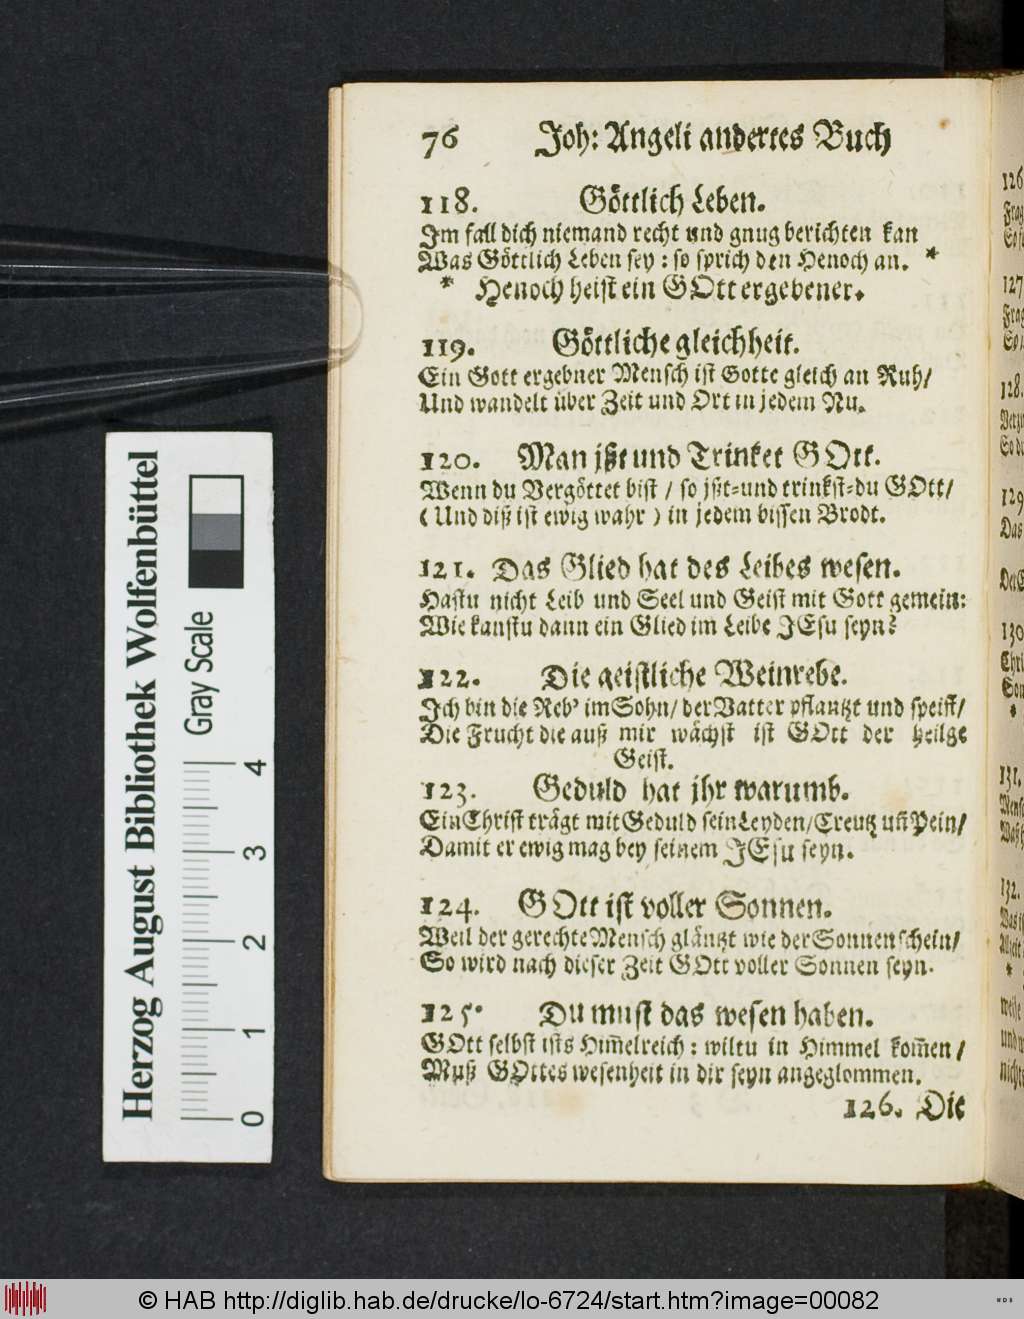 76 Joh: Angeli anderes Buch
118. Göttlich Leben.
Jm fall dich niemand recht und gnug berichten kan
Was Göttlich Leben sey: so sprich den Henoch an. *
* Henoch heist ein GOtt ergebener.
119. Göttliche gleichheit.
Ein Gott ergebner Mensch ist Gotte gleich an Ruh/
Und wandelt über Zeit und Ort in jedem Nu.
120. Man jßt und Trinket GOtt.
Wenn du Vergöttet bist / so jßt-und trinkst-du GOtt/
(Und diß ist ewig wahr) in jedem bissen Brodt.
121. Das Glied hat des Leibes wesen.
Hastu nicht Leib und Seel und Geist mit Gott gemein:
Wie kanstu dann ein Glied im Leibe JEsu seyn?
122. Die geistliche Weinrebe.
Jch bin die Reb' im Sohn/ der Vatter pflantzt und speist/
Die Frucht die auß mir wächst ist GOtt der heilge
Geist.
123. Geduld hat jhr warumb.
Ein Christ trägt mit Geduld sein Leyden/Creutz uñ Pein/
Damit er ewig mag bey seinem JEsu seyn.
124. GOtt ist voller Sonnen.
Weil der gerechte Mensch gläntzt wie der Sonnenschein/
So wird nach dieser Zeit GOtt voller Sonnen seyn.
125. Du must das wesen haben.
GOtt selbst ists Him̃elreich: wiltu in Himmel kom̃en/
Muß GOttes wesenheit in dir seyn angeglommen.
126. Die
Herzog August Bibliothek Wolfenbüttel
Gray Scale
0 1 2 3 4
126
127
128.
129
Das
130
131.
132.
© HAB http://diglib.hab.de/drucke/lo-6724/start.htm?image=00082